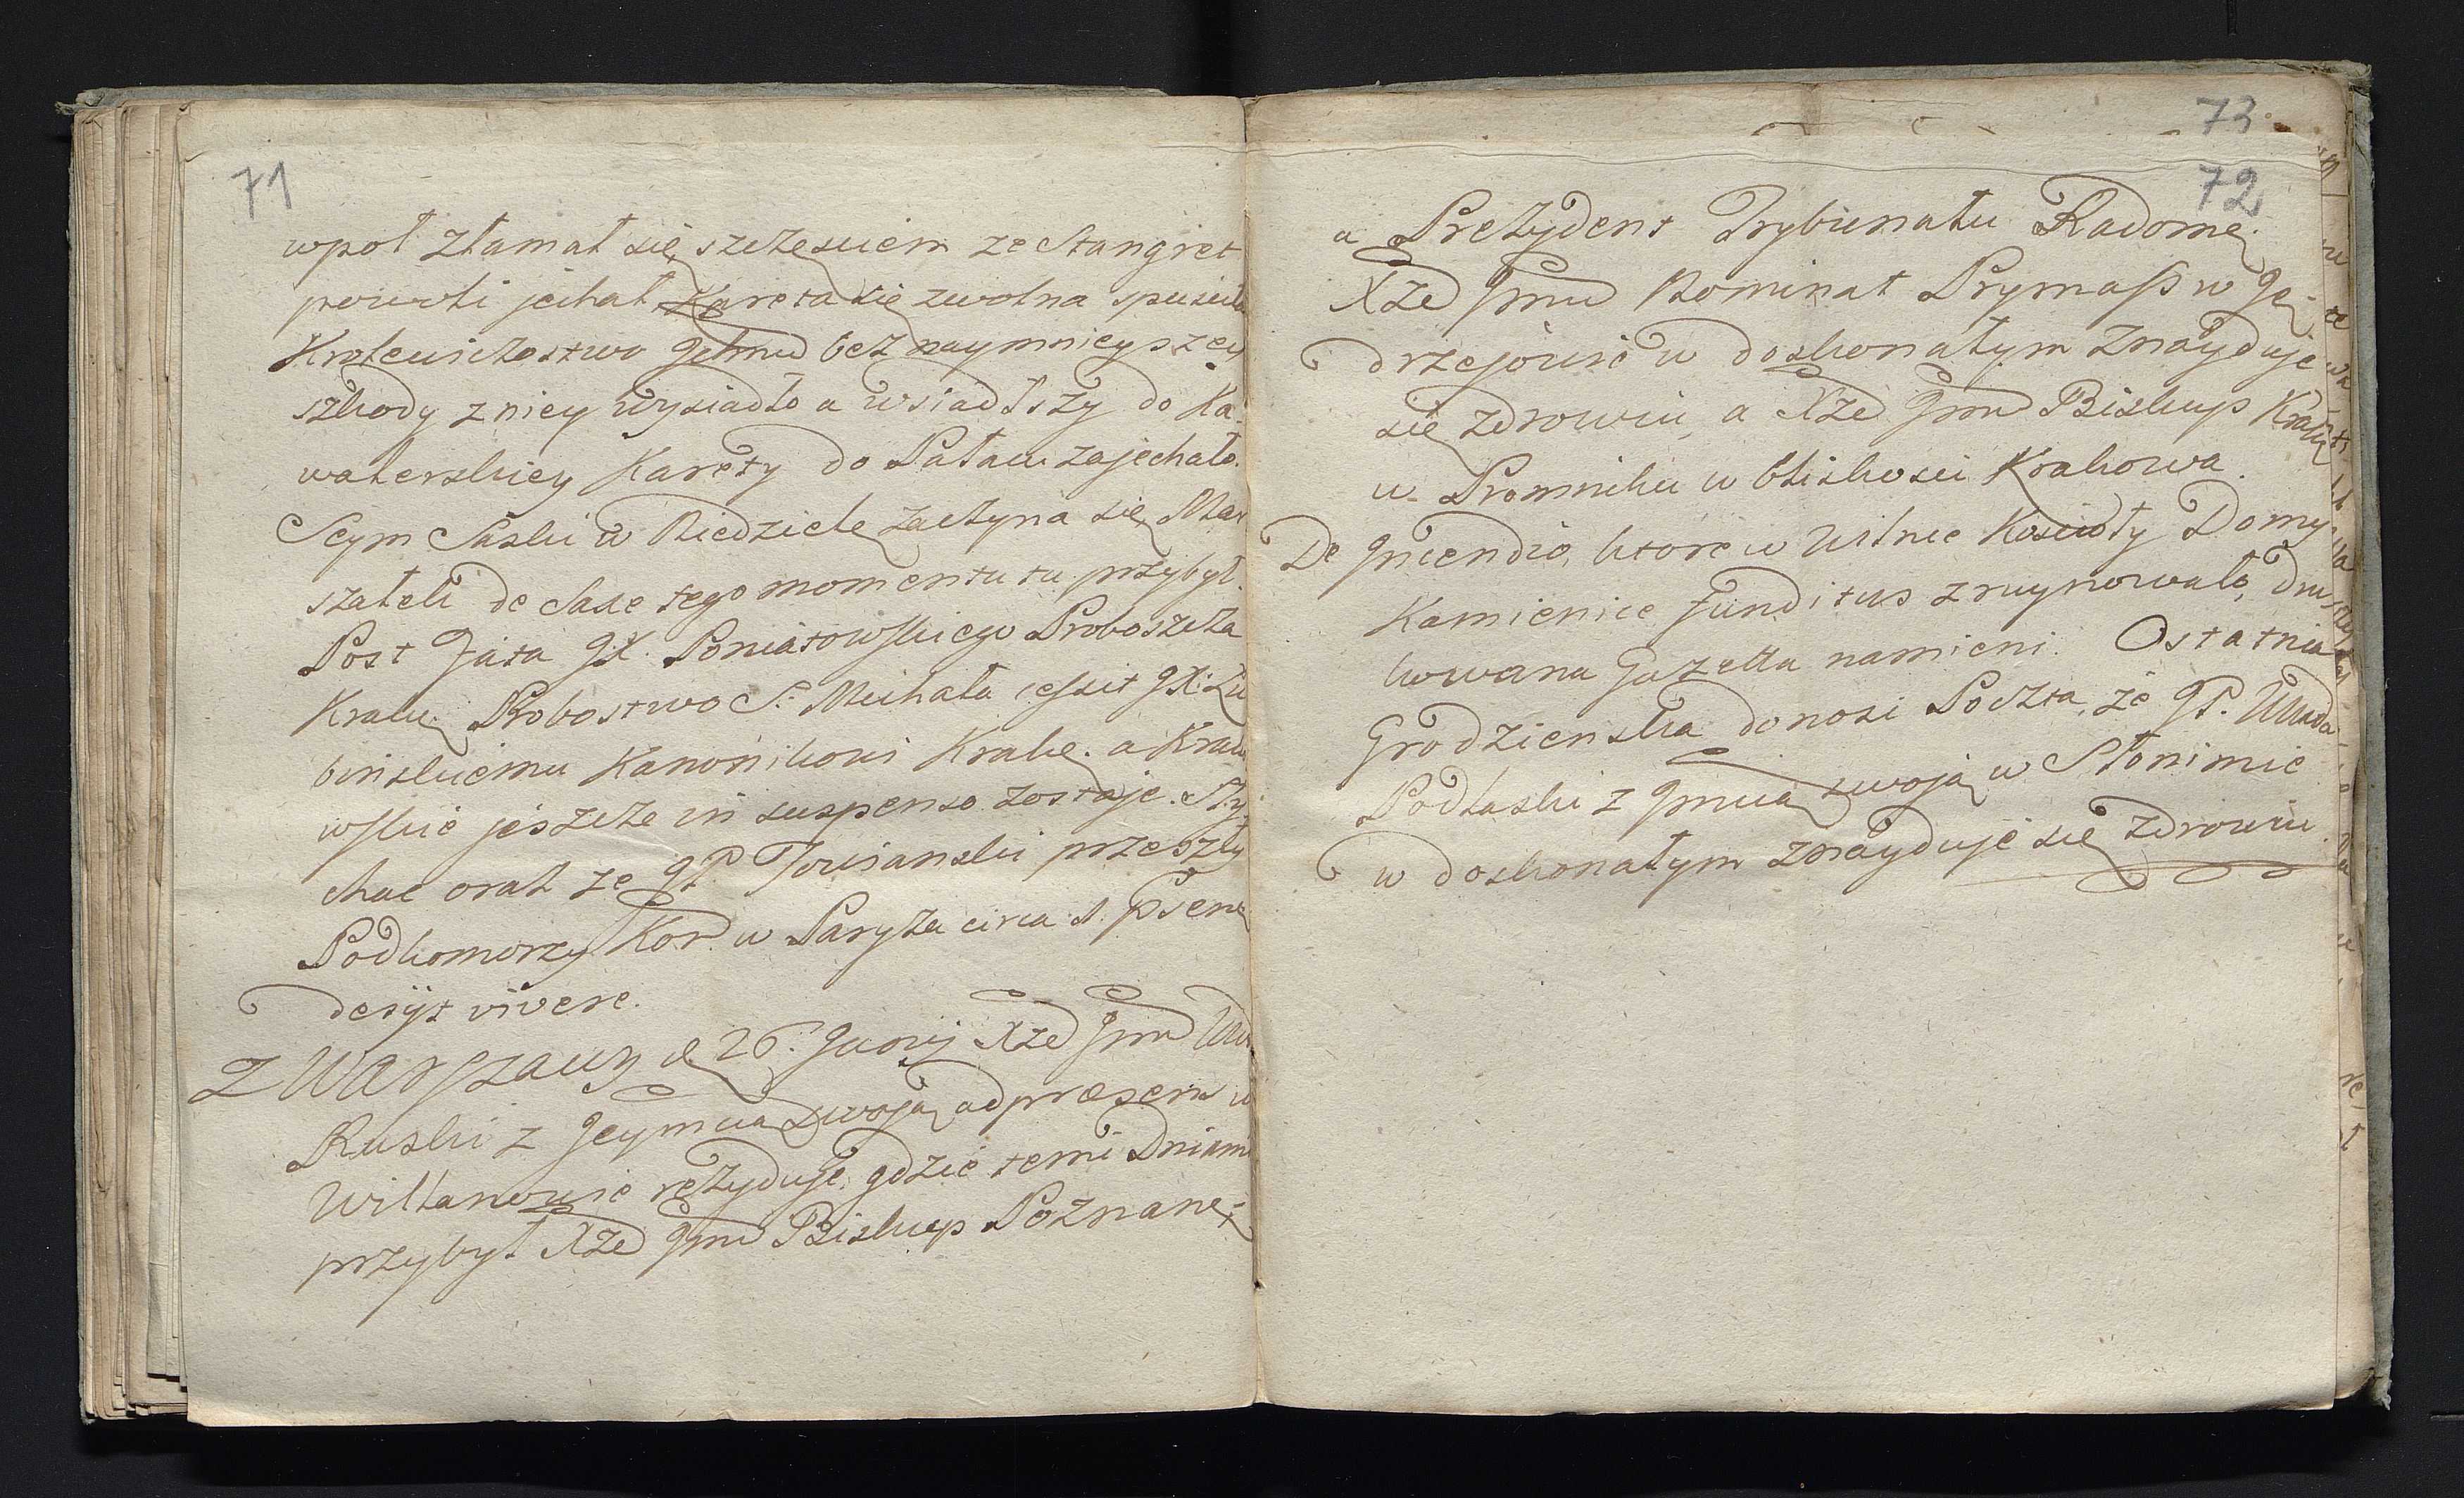 71
wpoł złamał się, szczesciem ze Stangret
powoli jechał, Kareta się zwolna spuscieła
Krolewiczostwo Ichmć bez naymnieyszey
szkody z niey wysiadło a wsiadłszy do Ka-
walerskiey Karety do Pałacu zajechało.
Seym Saski w Niedziele zaczyna się, Mar
szałek de Saxe tego momentu tu przybył.
Post Fata JX. Poniatowskiego Proboszcza
Krako. Probostwo S. Michała cessit JX: Lu
binskiemu Kanonikowi Krako. a Krako
wskie jeszcze in suspenso zostaje. Sły
chac oraz ze JP. Towianski przeszły
Podkomorzy Kor. w Paryżu circa d. psent
desÿt vivere.
Z Warszawy d. 26. Junij Xże Jmć Wda
Ruski z Jeymcią swoją ad præsens w
Willanowie rezyduje, gdzie temi Dniami
przybył Xże Jmć Biskup Poznane:
73
72
a Prezydent Trybunału Radome.
Xże Jmć Nominat Prymass w Ję-
drzejowie w doskonałym znayduje
się zdrowiu, a Xże Jmć Biskup Krako
w Promniku w bliskosci Krakowa.
De Incendio, ktore w Wilnie Koscioły Domy
Kamienice funditus zruynowało, dru-
kowana Gazetta namieni. Ostatnia
Grodzienska donosi Poczta, że JP. Wwda
Podlaski z Jmcią swoją w Słonimie
w doskonałym znayduje się zdrowiu.